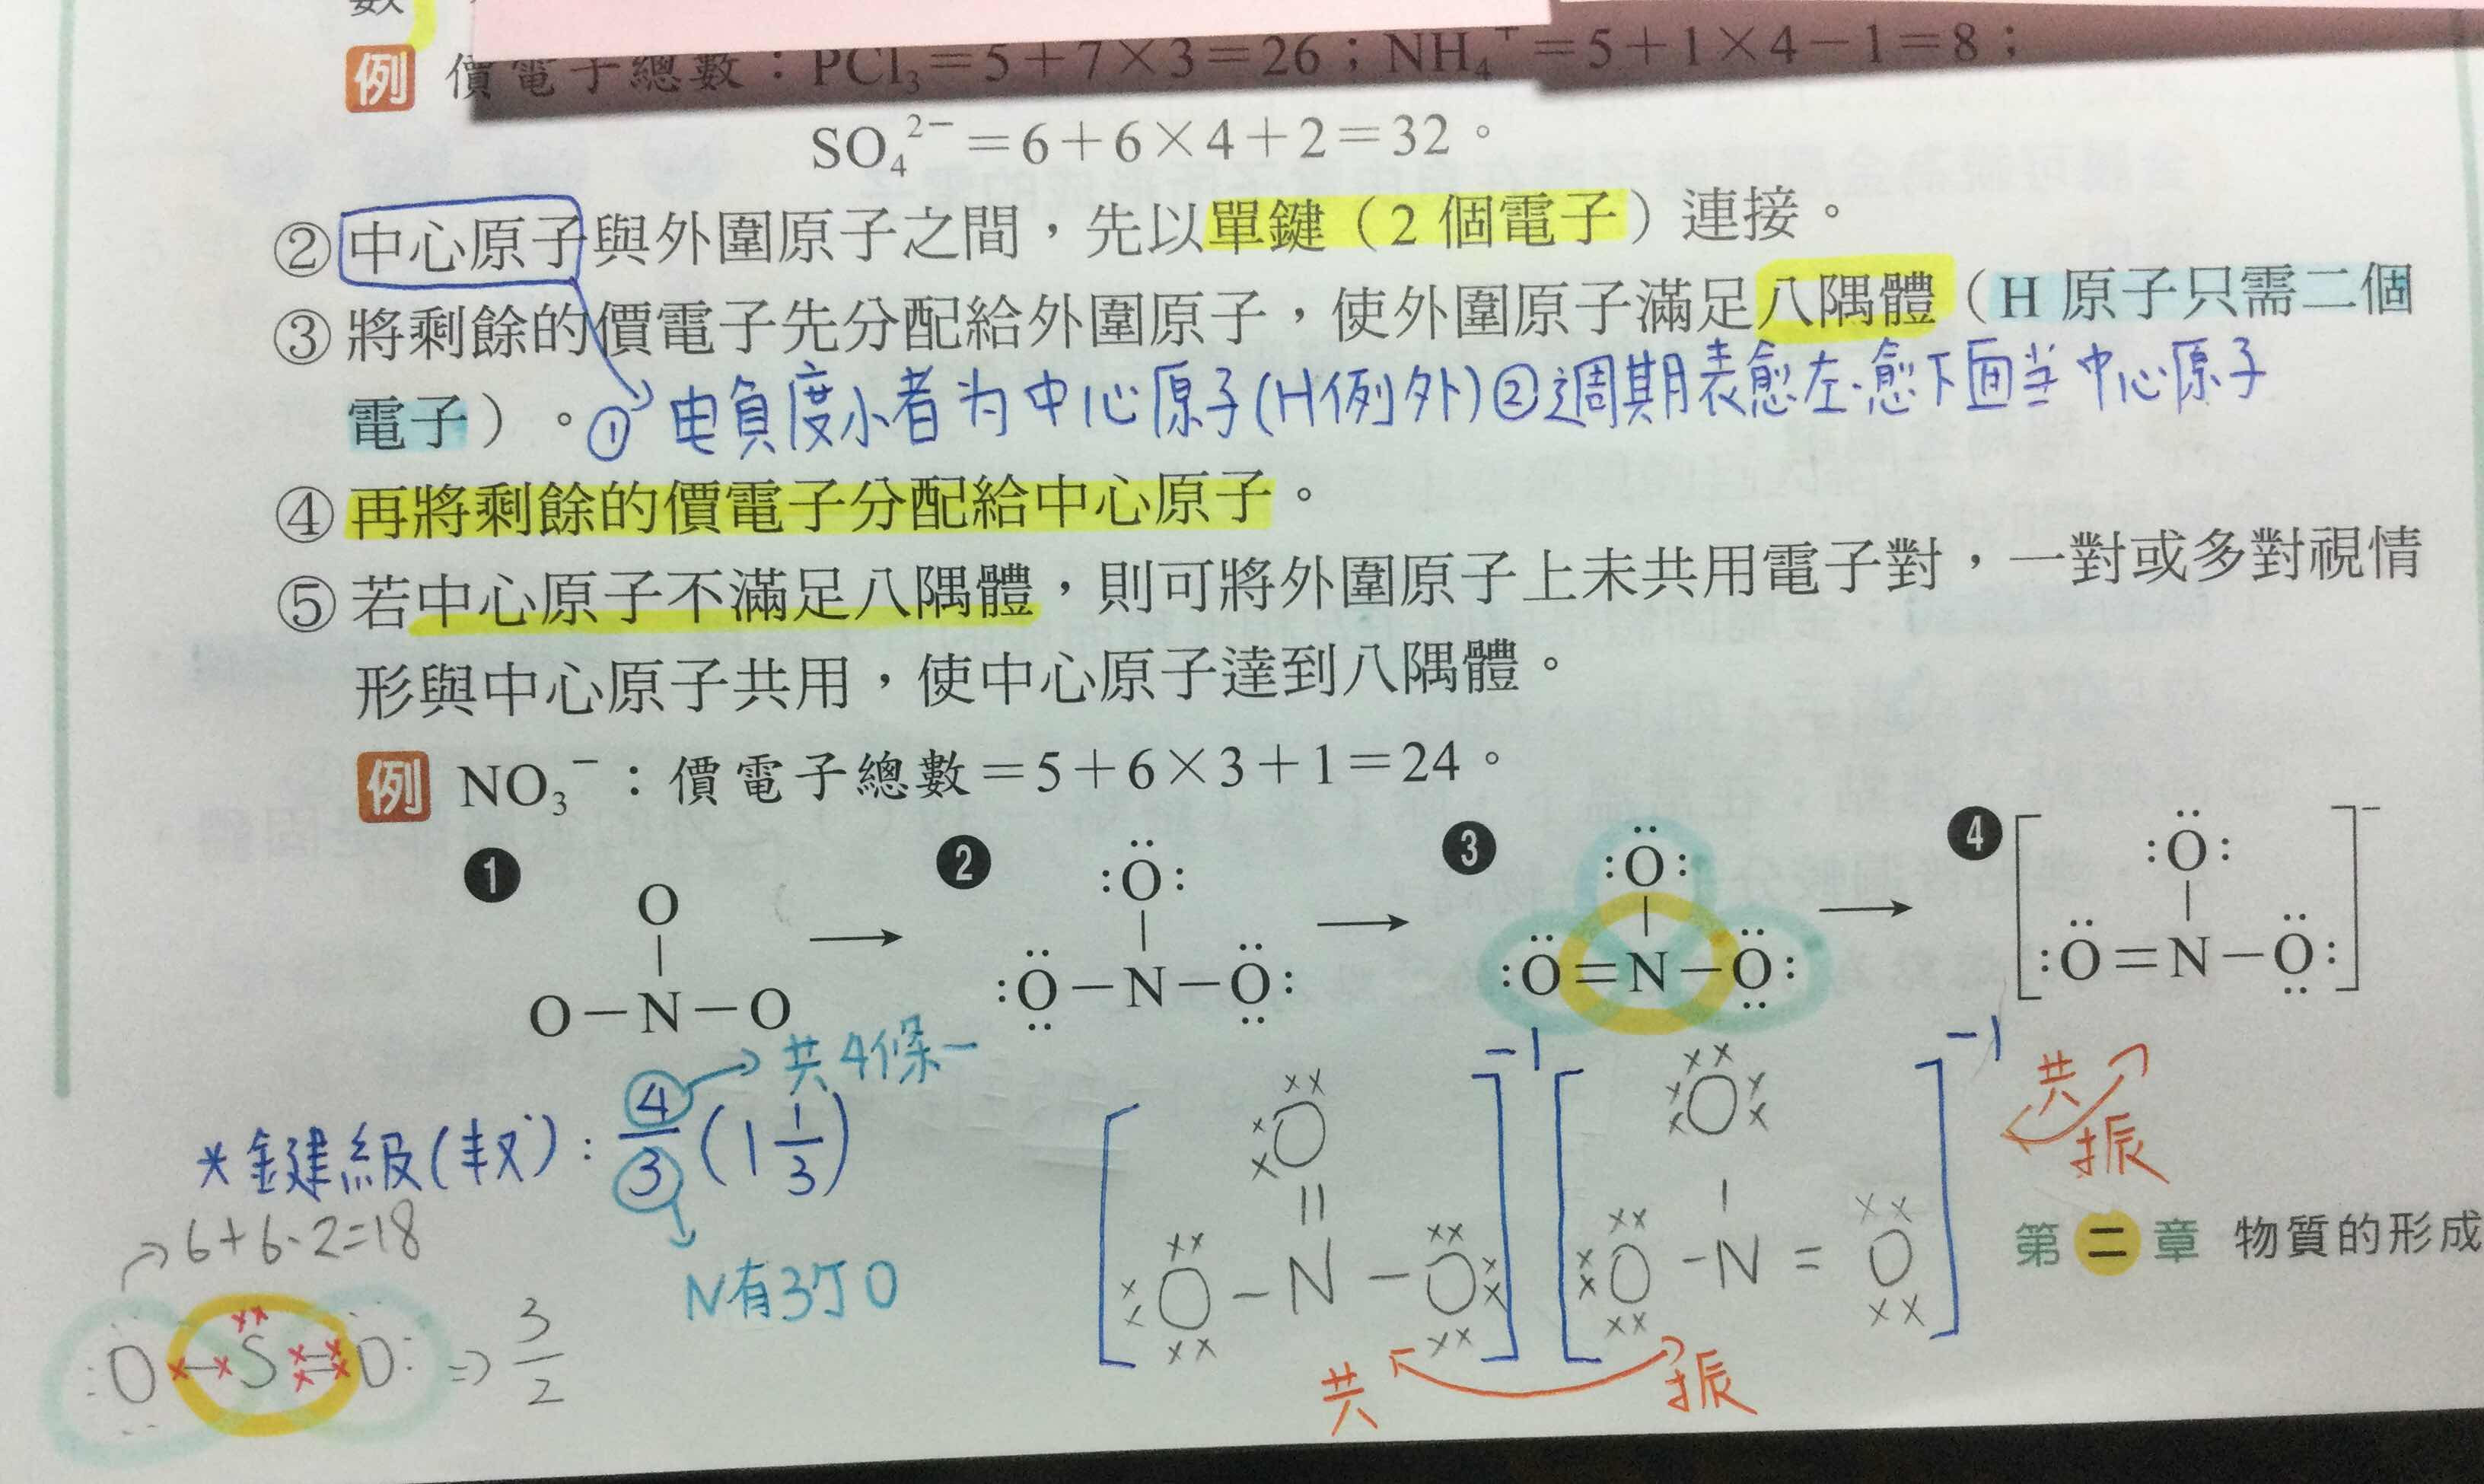 數
例 價電子總數：PCl₃＝5＋7×3＝26；NH₄⁺＝5＋1×4－1＝8；
SO₄²⁻＝6＋6×4＋2＝32。
② 中心原子與外圍原子之間，先以單鍵（2 個電子）連接。
③ 將剩餘的價電子先分配給外圍原子，使外圍原子滿足八隅體（H 原子只需二個
電子）。
① 电負度小者为中心原子(H例外) ② 週期表愈左.愈下面当中心原子
④ 再將剩餘的價電子分配給中心原子。
⑤ 若中心原子不滿足八隅體，則可將外圍原子上未共用電子對，一對或多對視情
形與中心原子共用，使中心原子達到八隅體。
例 NO₃⁻：價電子總數＝5＋6×3＋1＝24。
❶ ❷ ❸ ❹
O O O O
O－N－O → O－N－O → O＝N－O → [O＝N－O]⁻
共4條一
*鍵級(数): 4/3 (1 1/3)
N有3丁O
6+6·2=18
O - S = O ⇒ 3/2
[O
=
O - N - O]-1
[O
-
O - N = O]-1
共振
共振
第二章 物質的形成